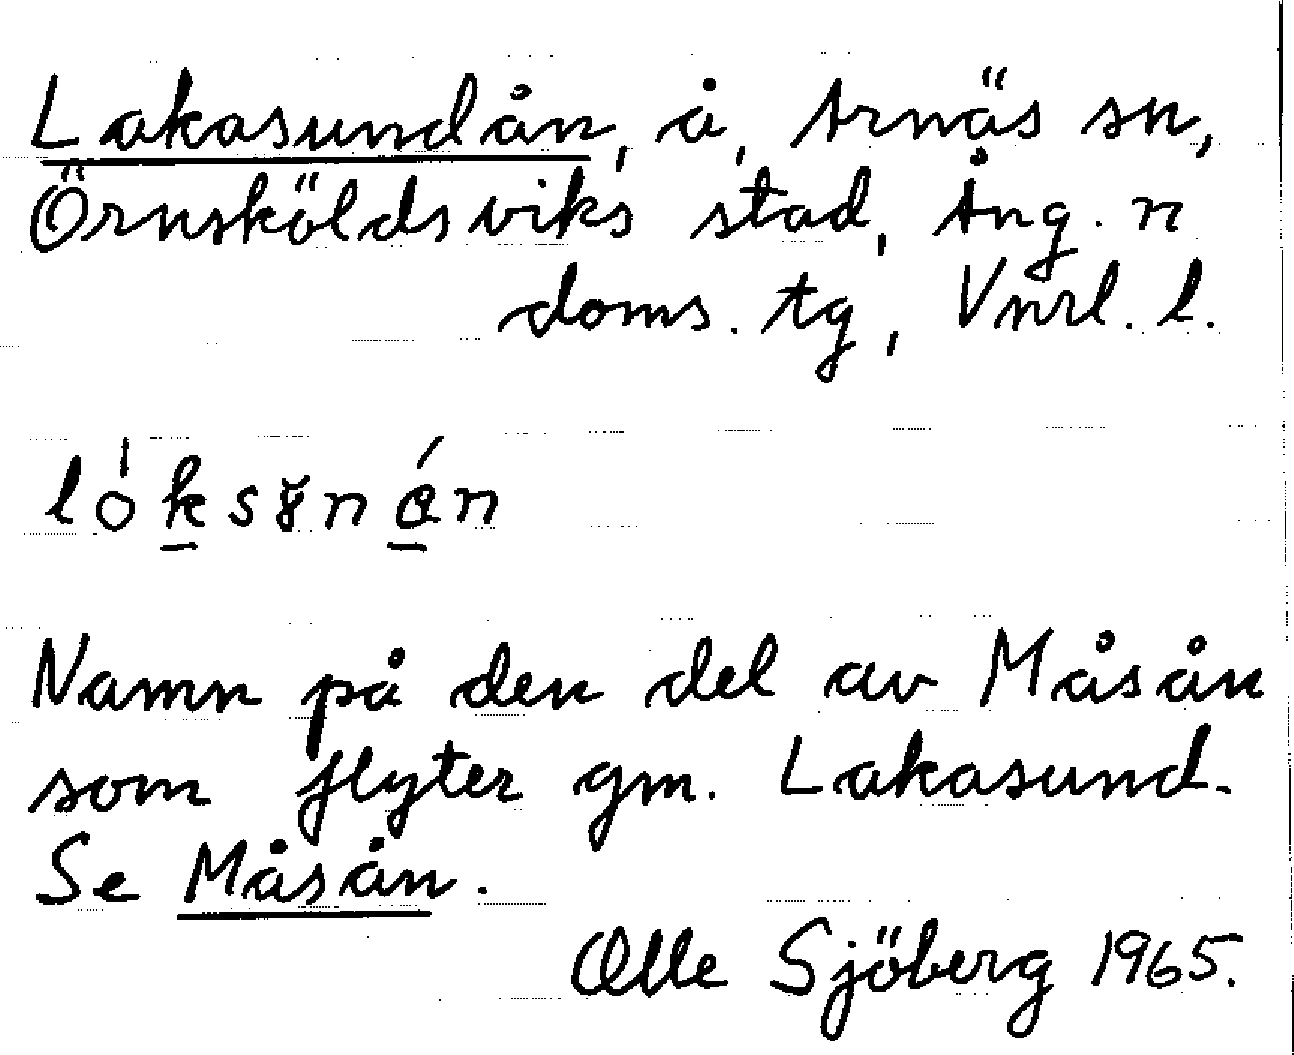 Lakasundån, å, Arnäs sn,
Örnsköldsviks stad, Ång. n
doms. tg, Vnrl. l.
Namn på den del av Måsån
som flyter gm. Lakasund.
Se Måsån.
Olle Sjöberg 1965.